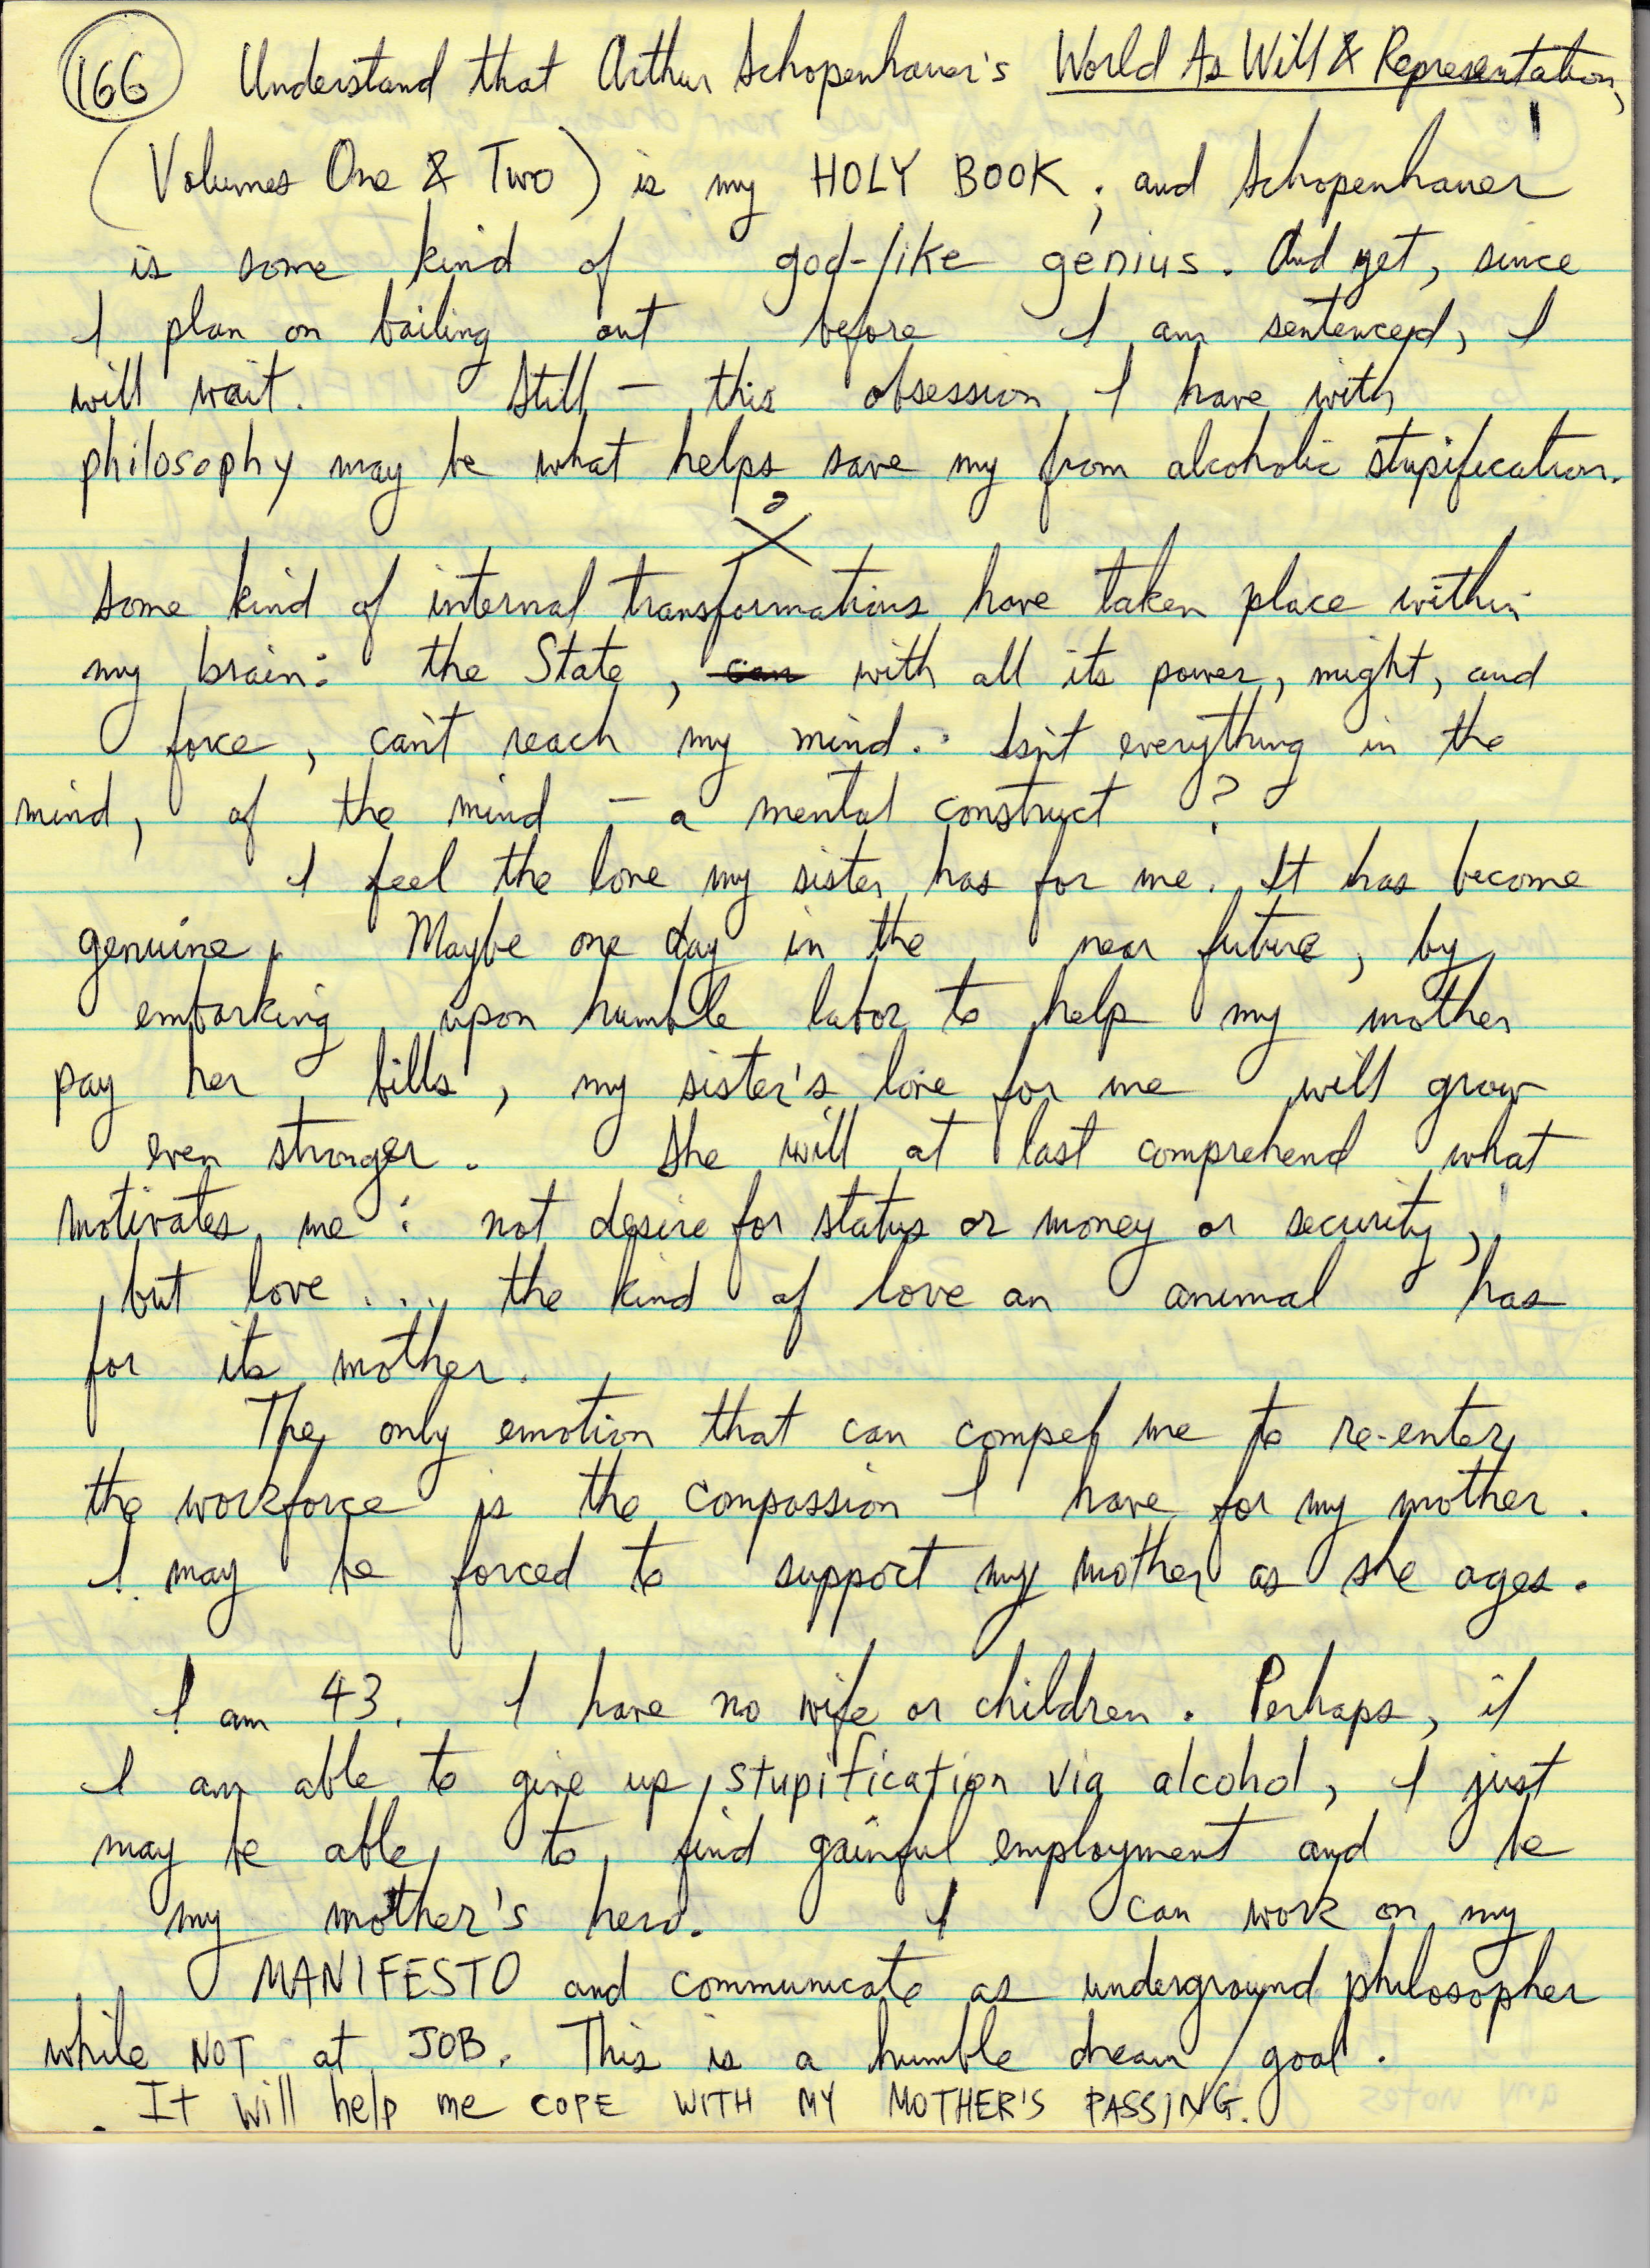 166 Understand that Arthur Schopenhauer's World As Will & Representation,
(Volumes One & Two) is my HOLY BOOK; and Schopenhauer
is some kind of god-like genius. And yet, since
I plan on bailing out before I am sentenced, I
will wait. Still – this obsession I have with
philosophy may be what helps save my from alcoholic stupification.
Some kind of internal transformations have taken place within
my brain: the State, can with all its power, might, and
force, can't reach my mind. Isn't everything in the
mind, of the mind – a mental construct?
I feel the love my sister has for me. It has become
genuine. Maybe one day in the near future, by
embarking upon humble labor to help my mother
pay her bills, my sister's love for me will grow
even stronger. She will at last comprehend what
motivates me: not desire for status or money or security,
but love .... the kind of love an animal has
for its mother.
The only emotion that can compel me to re-enter
the workforce is the compassion I have for my mother.
I may be forced to support my mother as she ages.
I am 43. I have no wife or children. Perhaps, if
I am able to give up stupification via alcohol, I just
may be able to find gainful employment and be
my mother's hero. I can work on my
MANIFESTO and communicate as underground philosopher
while NOT at JOB. This is a humble dream/goal.
It will help me COPE WITH MY MOTHER'S PASSING.